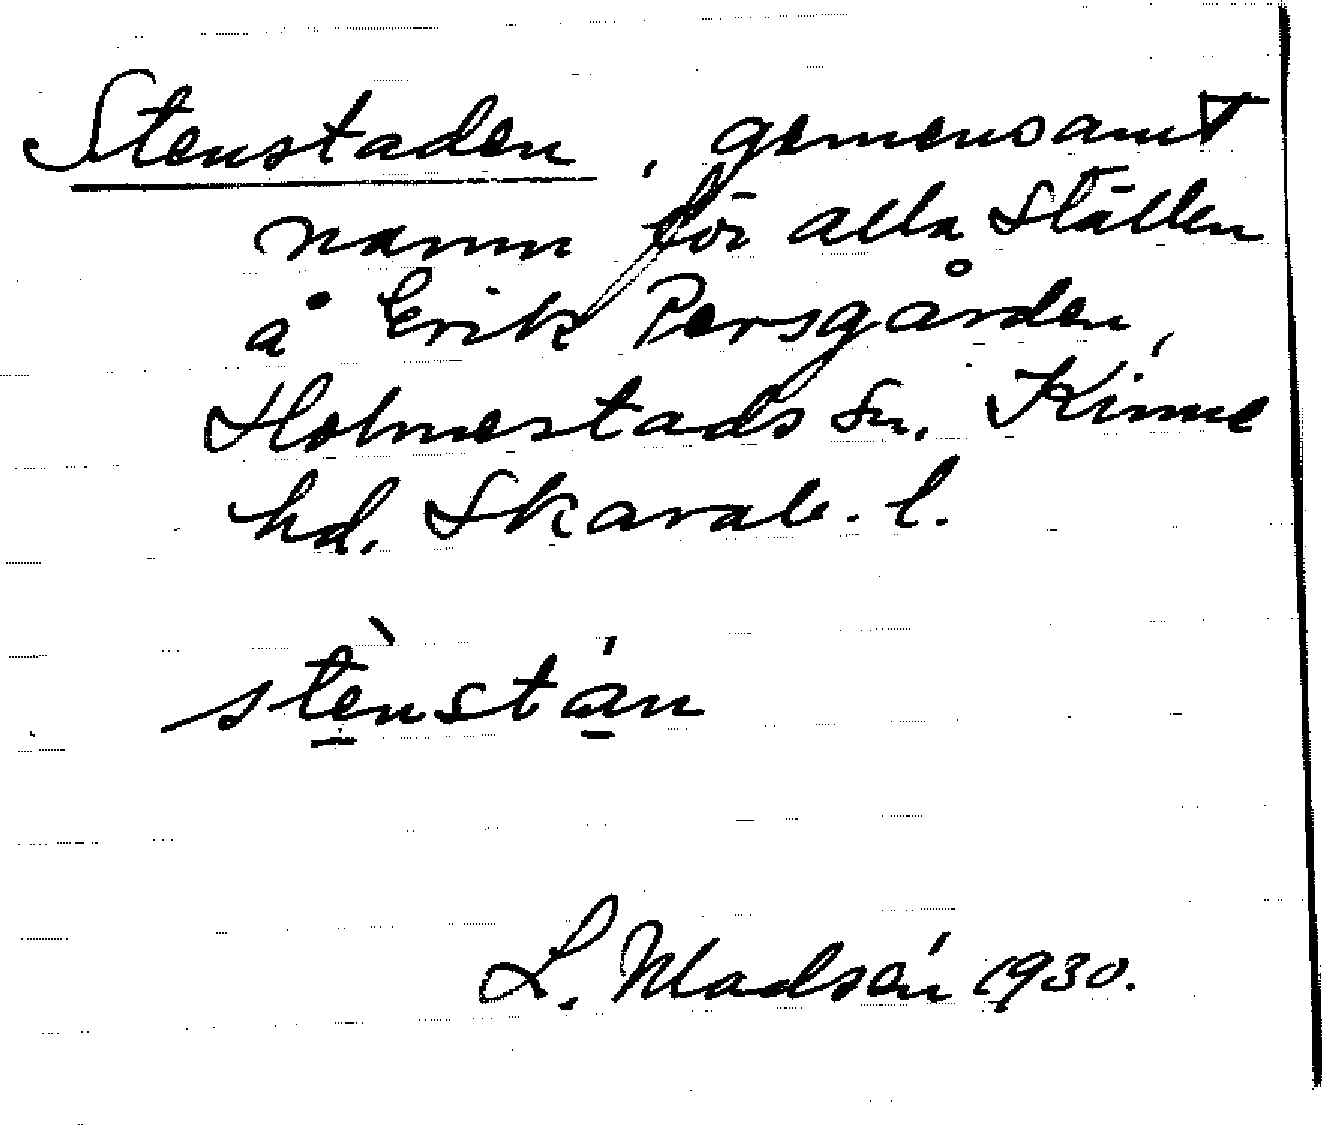 Stenstaden, gemensamt
namn för alla ställen
å Erik Persgården,
Holmestads sn. Kinne
hd. Skarab. l.
stè̱nstá̱n
L. Madsén 1930.